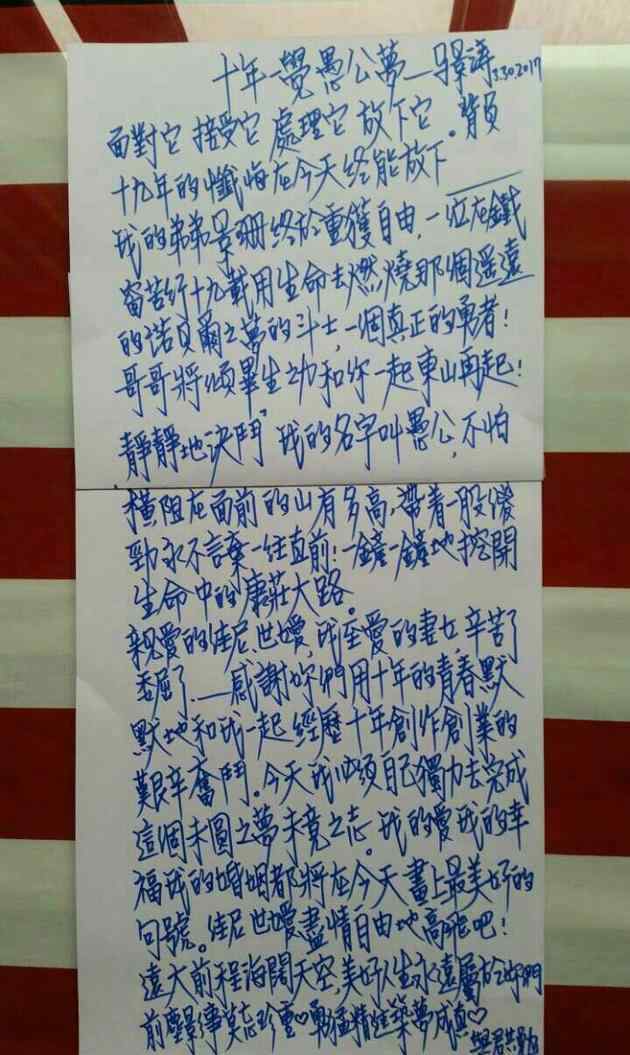 十年一覺愚公夢—馬景濤3.30.2017
面對它 接受它 處理它 放下它。背負
十九年的懺悔在今天終能放下——
我的弟弟景珊終於重獲自由，一位在鐵
窗苦行十九載用生命去燃燒那個遥遠
的诺貝爾之夢的斗士，一個真正的勇者！
哥哥將傾畢生之功和你一起東山再起！
靜靜地决鬥，我的名字叫愚公，不怕
橫阻在面前的山有多高，帶着一股傻
勁永不言棄一往直前！一鏟一鏟地挖開
生命中的康莊大路。
親愛的佳尼、世嬡，我至愛的妻女，辛苦了
委屈了——感謝妳們用十年的青春默
默地和我一起經歷十年創作創業的
艱辛奮鬥。今天我必須自己獨力去完成
這個未圓之夢未竟之志。我的愛我的幸
福我的婚姻都將在今天畫上最美好的
句號。佳尼世嬡盡情自由地高飛吧！
遠大前程海闊天空，美好人生永遠屬於妳們
前塵影事莫忘珍重♡勇猛精進築夢成真♡
與君共勉